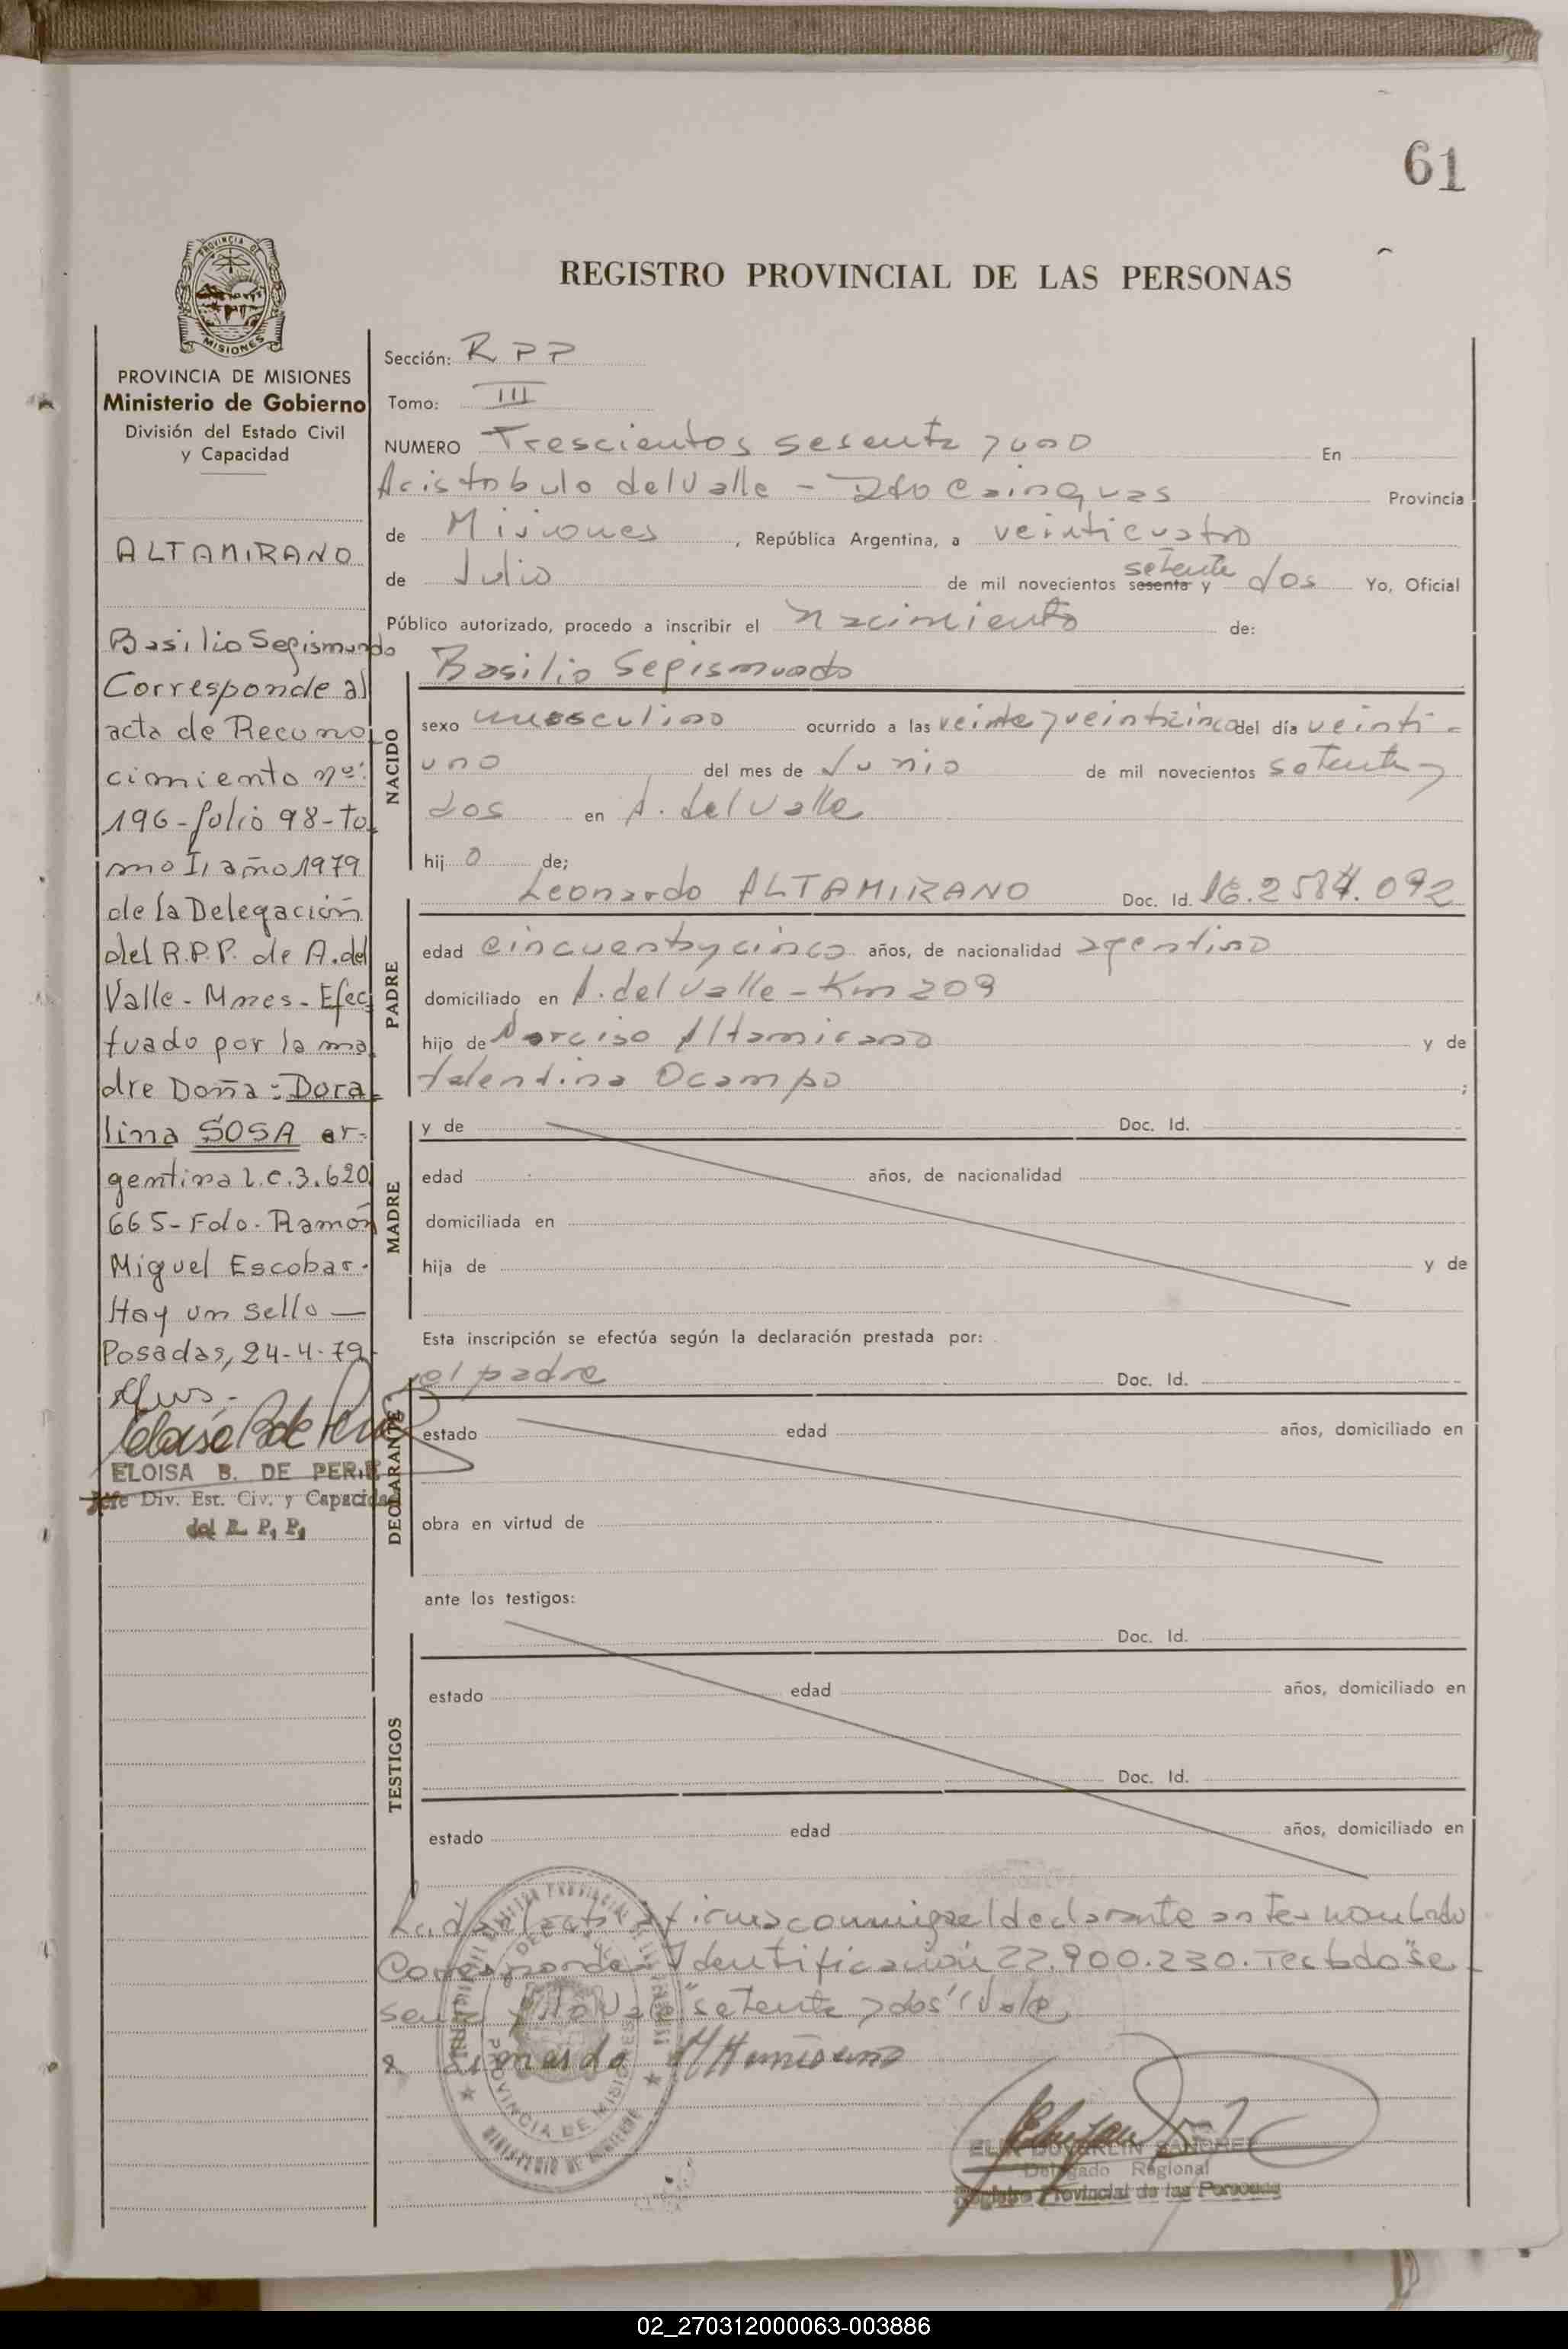 61
PROVINCIA DE
MISIONES
REGISTRO PROVINCIAL DE LAS PERSONAS
PROVINCIA DE MISIONES
Ministerio de Gobierno
División del Estado Civil
y Capacidad
ALTAMIRANO
Basilio Segismundo
Corresponde al
acta de Recono
cimiento nº:
196-folio 98-to
mo I, año 1979
de la Delegación
del R.P.P. de A. del
Valle-Mnes-Efec
tuado por la ma
dre Doña: Dora
lina SOSA ar-
gentina L.C.3.620
665-Fdo. Ramón
Miguel Escobar-
Hay un sello—
Posadas, 24-4-79
ELOISA B. DE
Jefe Div. Est. Civ. y Capacidad
del R. P. P.
Sección: R P P
Tomo: III
NUMERO Trescientos sesenta y uno En
Aristobulo del Valle - Dto Cainguas Provincia
de Misiones, República Argentina, a veinticuatro
de Julio de mil novecientos sesenta y setenta dos Yo, Oficial
Público autorizado, procedo a inscribir el nacimiento de:
Basilio Segismundo
NACIDO
sexo masculino ocurrido a las veinte y veinticinco del día veinti-
uno del mes de Junio de mil novecientos setenta y
dos en A. del Valle
hij o de;
Leonardo ALTAMIRANO Doc. Id.
PADRE
edad cincuenta y cinco años, de nacionalidad argentino
domiciliado en A. del Valle - Km 209
hijo de Narciso Altamirano y de
Valentina Ocampo ;
MADRE
y de Doc. Id.
edad años, de nacionalidad
domiciliada en
hija de y de
Esta inscripción se efectúa según la declaración prestada por:
el padre Doc. Id.
DECLARANTE
estado edad años, domiciliado en
obra en virtud de
ante los testigos:
TESTIGOS
Doc. Id.
estado edad años, domiciliado en
Doc. Id.
estado edad años, domiciliado en
firma conmigo el declarante antes nombrado
Corresponde Identificación 22.900.230. Testado "se
senta" "setenta y dos" Vale
PROVINCIA DE MISIONES
MINISTERIO DE GOBIERNO
Leonardo Altamirano
Delegado Regional
Registro Provincial de las Personas
02_270312000063-003886